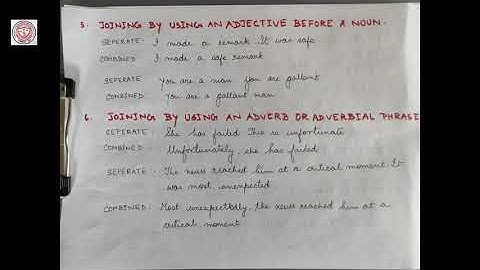 5. JOINING BY USING AN ADJECTIVE BEFORE A NOUN.
SEPERATE- I made a remark. It was safe
COMBINED I made a safe remark
SEPERATE You are a man you are gallant
COMBINED You are a gallant man
6. JOINING BY USING AN ADVERB OR ADVERBIAL PHRASE
SEPERATE She has failed This is unfortunate
COMBINED Unfortunately, she has failed
SEPERATE- The news reached him at a critical moment. It
was most unexpected
COMBINED: Most unexpectedly, the news reached him at a
critical moment